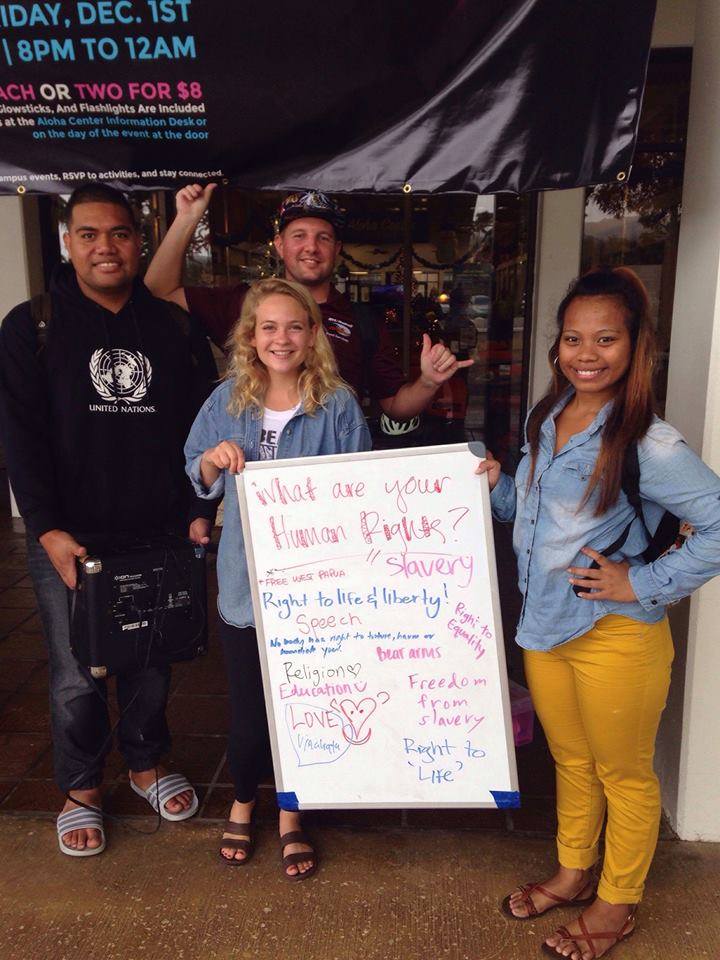 IDAY, DEC. 1ST
| 8PM TO 12AM
ACH OR TWO FOR $8
Glowsticks, And Flashlights Are Included
s at the Aloha Center Information Desk or
on the day of the event at the door
ampus events, RSVP to activities, and stay connected.
Aloha Center
UNITED NATIONS
BE
ION
What are your
Human Rights?
"slavery
* FREE WEST PAPUA
Right to life & liberty!
Speech
Right to
Equality
No body has right to torture, harm or
you.
bear arms
Religion
Education
Freedom
from
slavery
LOVE
Right to
"LIFE"